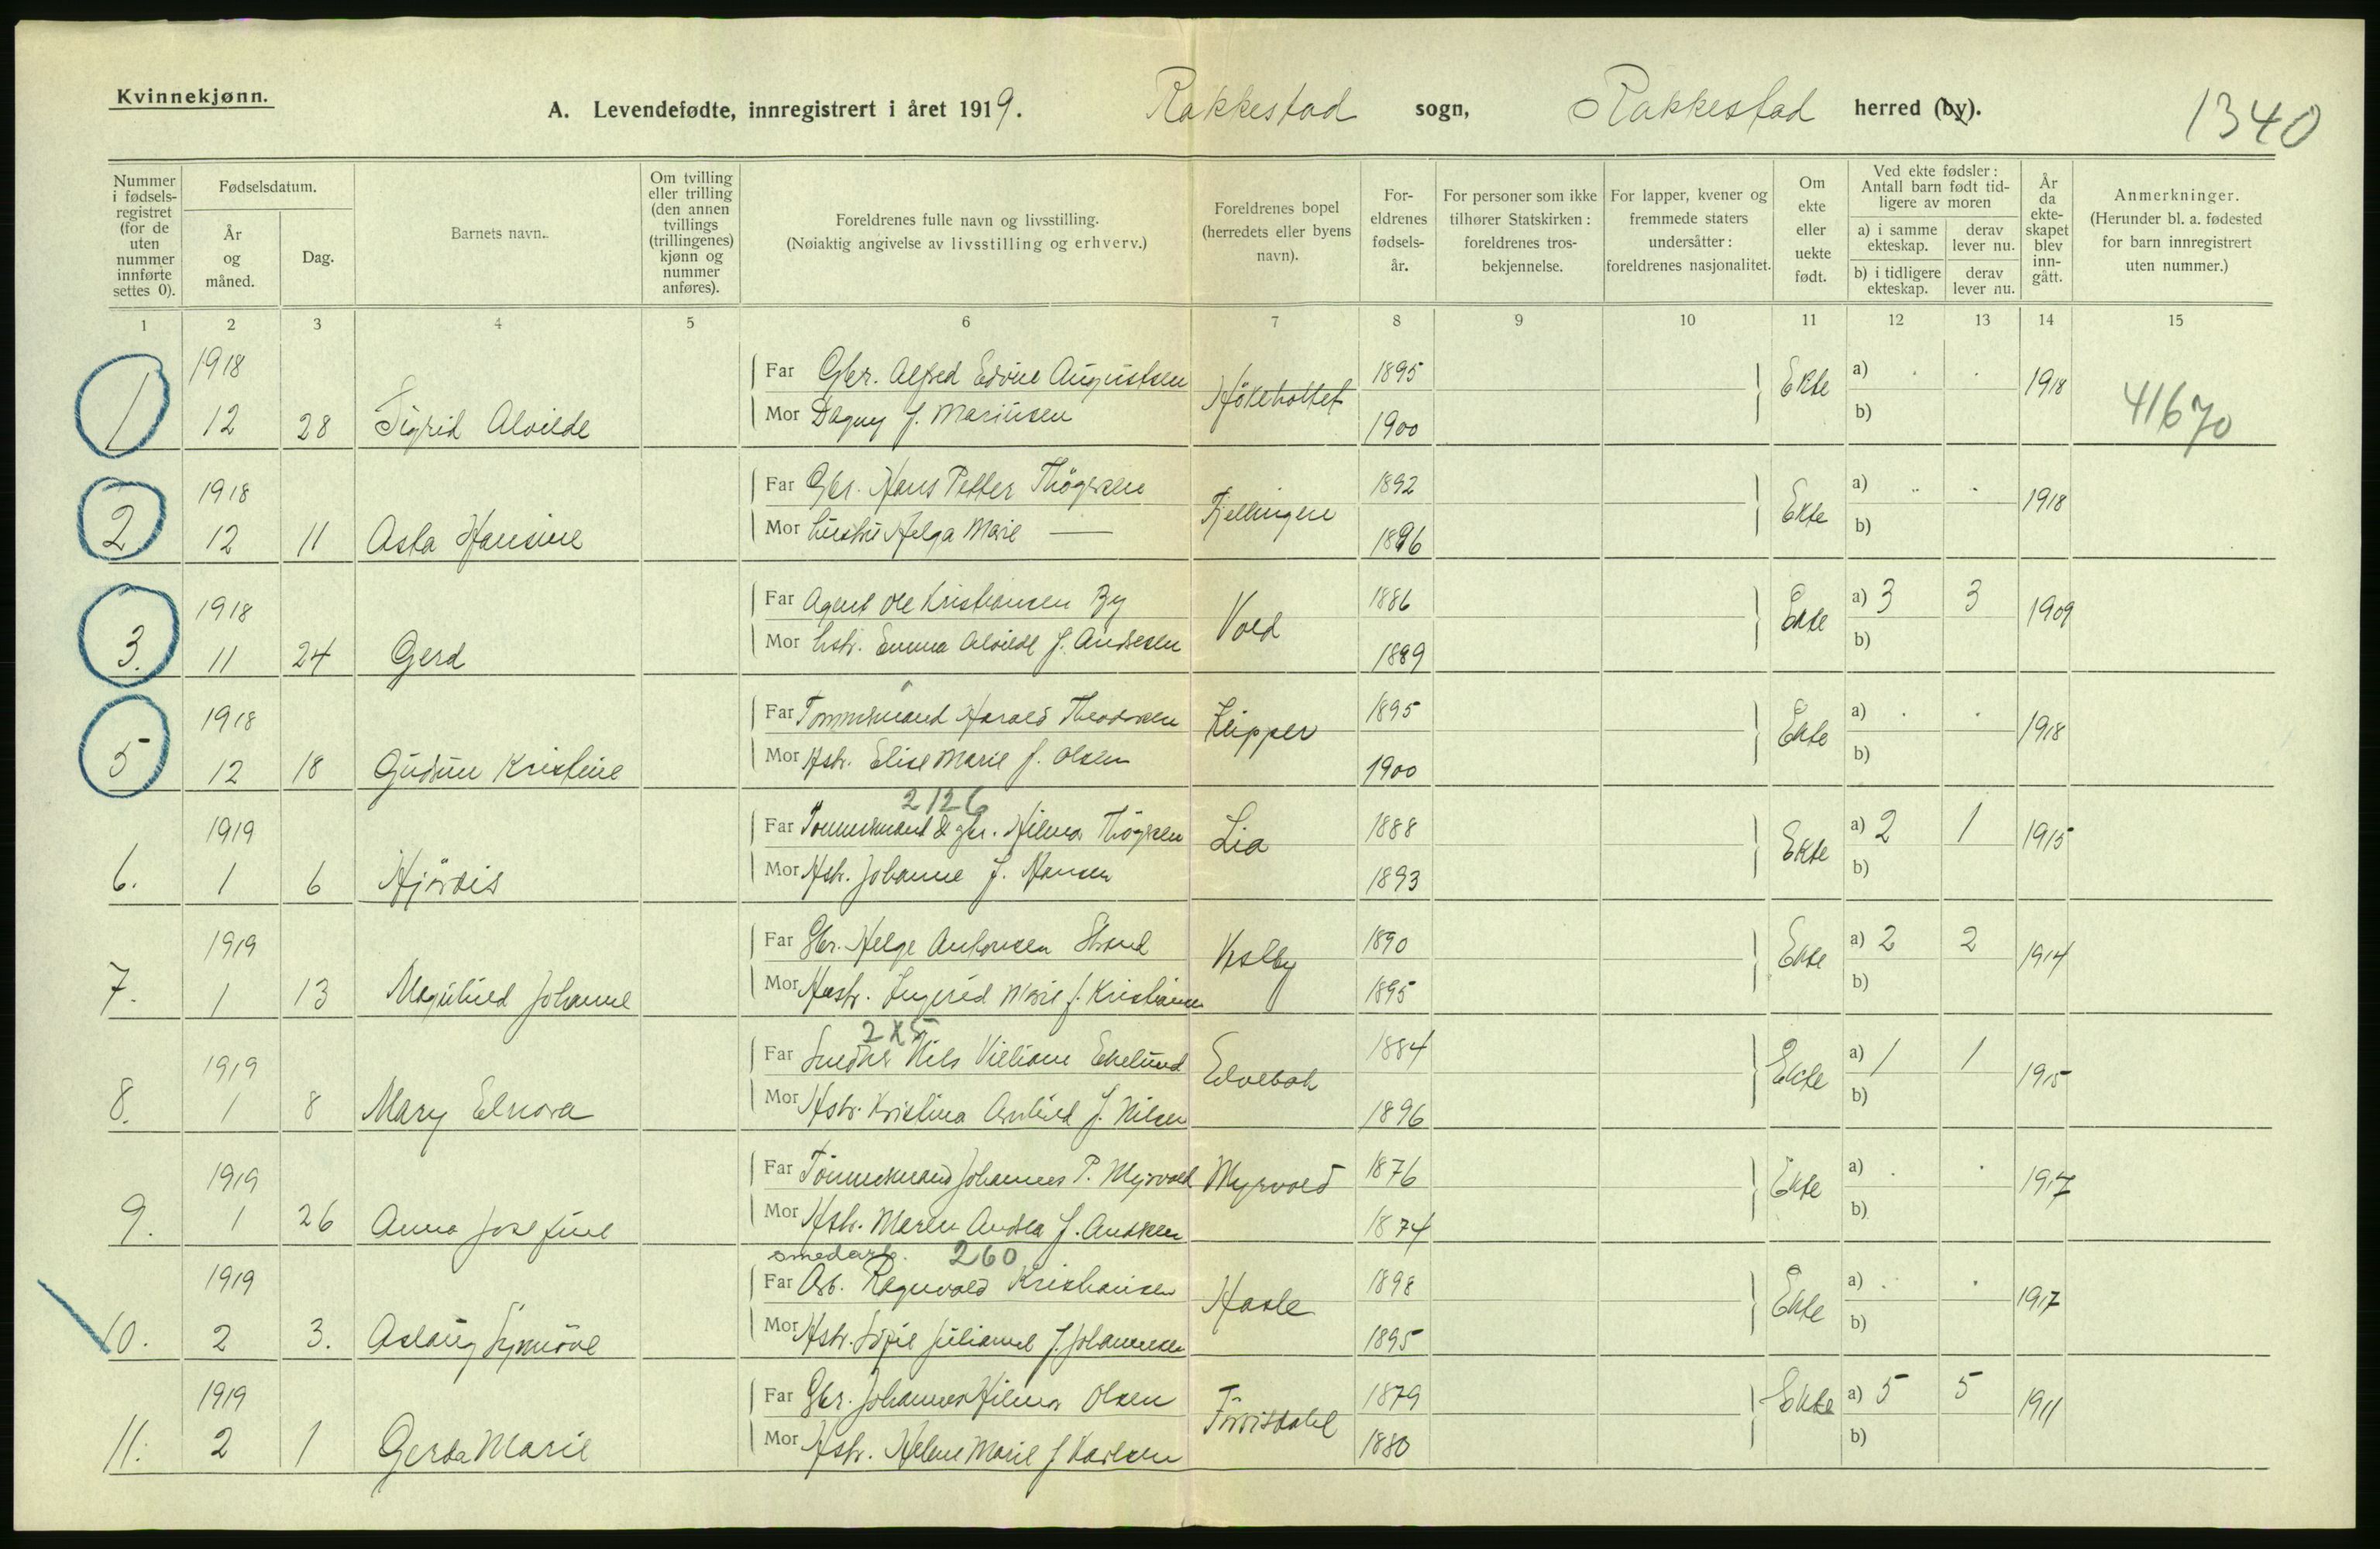 Kvinnekjønn.
A. Levendefødte, innregistrert i året 1919. Rakkestad sogn, Rakkestad herred (by).
1340
Nummer i fødselsregistret (for de uten nummer innførte settes 0).
Fødselsdatum.
År og måned.
Dag.
Barnets navn.
Om tvilling eller trilling (den annen tvillings (trillingenes) kjønn og nummer anføres).
Foreldrenes fulle navn og livsstilling.
(Nøiaktig angivelse av livsstilling og erhverv.)
Foreldrenes bopel (herredets eller byens navn).
Foreldrenes fødselsår.
For personer som ikke tilhører Statskirken: foreldrenes trosbekjennelse.
For lapper, kvener og fremmede staters undersåtter: foreldrenes nasjonalitet.
Om ekte eller uekte født.
Ved ekte fødsler: Antall barn født tidligere av moren
a) i samme ekteskap.
derav lever nu.
b) i tidligere ekteskap.
derav lever nu.
År da ekteskapet blev inngått.
Anmerkninger.
(Herunder bl. a. fødested for barn innregistrert uten nummer.)
1 2 3 4 5 6 7 8 9 10 11 12 13 14 15
1918 Far Gbr. Alfred Edvin Augustsen 1895 Ekte a) . . 1918
1 12 28 Sigrid Alvilde Mor Dagny f. Marinsen 1900 b) 41670
1918 Far Gbr. Hans Petter Thøgersen 1892 Ekte a) . . 1918
2 12 11 Asta Hansine Mor hustru Helga Marie — Fjellingen 1896 b)
1918 Far Agent Ole Kristiansen By 1886 Ekte a) 3 3 1909
3. 11 24 Gerd Mor hstr. Emma Alvilde f. Andersen Vold 1889 b)
1918 Far Tømmermand Harald Theodorsen Klipper 1895 Ekte a) . . 1918
5 12 18 Gudrun Kristine Mor Hstr. Elise Marie f. Olsen 1900 b)
2126
1919 Far Tømmermand & gbr. Hilmar Thøgersen Lia 1888 Ekte a) 2 1 1915
6. 1 6 Hjørdis Mor Hstr. Johanne f. Hansen 1893 b)
1919 Far Gbr. Helge Antonsen Strand 1890 Ekte a) 2 2 1914
7. 1 13 Magnhild Johanne Mor Hustr. Ingerid Marie f. Kristiansen 1895 b)
1919 Far Nils Villiam Ekelund 1884 Ekte a) 1 1 1915
8. 1 8 Mary Elnora Mor Hstr. Kristina f. Nilsen 1896 b)
1919 Far Tømmermand Johannes P. Myrvold Myrvold 1876 Ekte a) . . 1917
9. 1 26 Anna Josefine Mor Hstr. Maren Andrea f. Andersen 1874 b)
smedarb. 260
1919 Far Arb. Ragnvald Kristiansen Hasle 1898 Ekte a) . . 1917
10. 2 3. Aslaug Synnøve Mor Hstr. Sofie Juliane f. Johannesen 1895 b)
1919 Far Gbr. Johannes Hilmar Olsen 1879 Ekte a) 5 5 1911
11. 2 1 Gerda Marie Mor Hstr. Helene Marie f. Karlsen 1880 b)